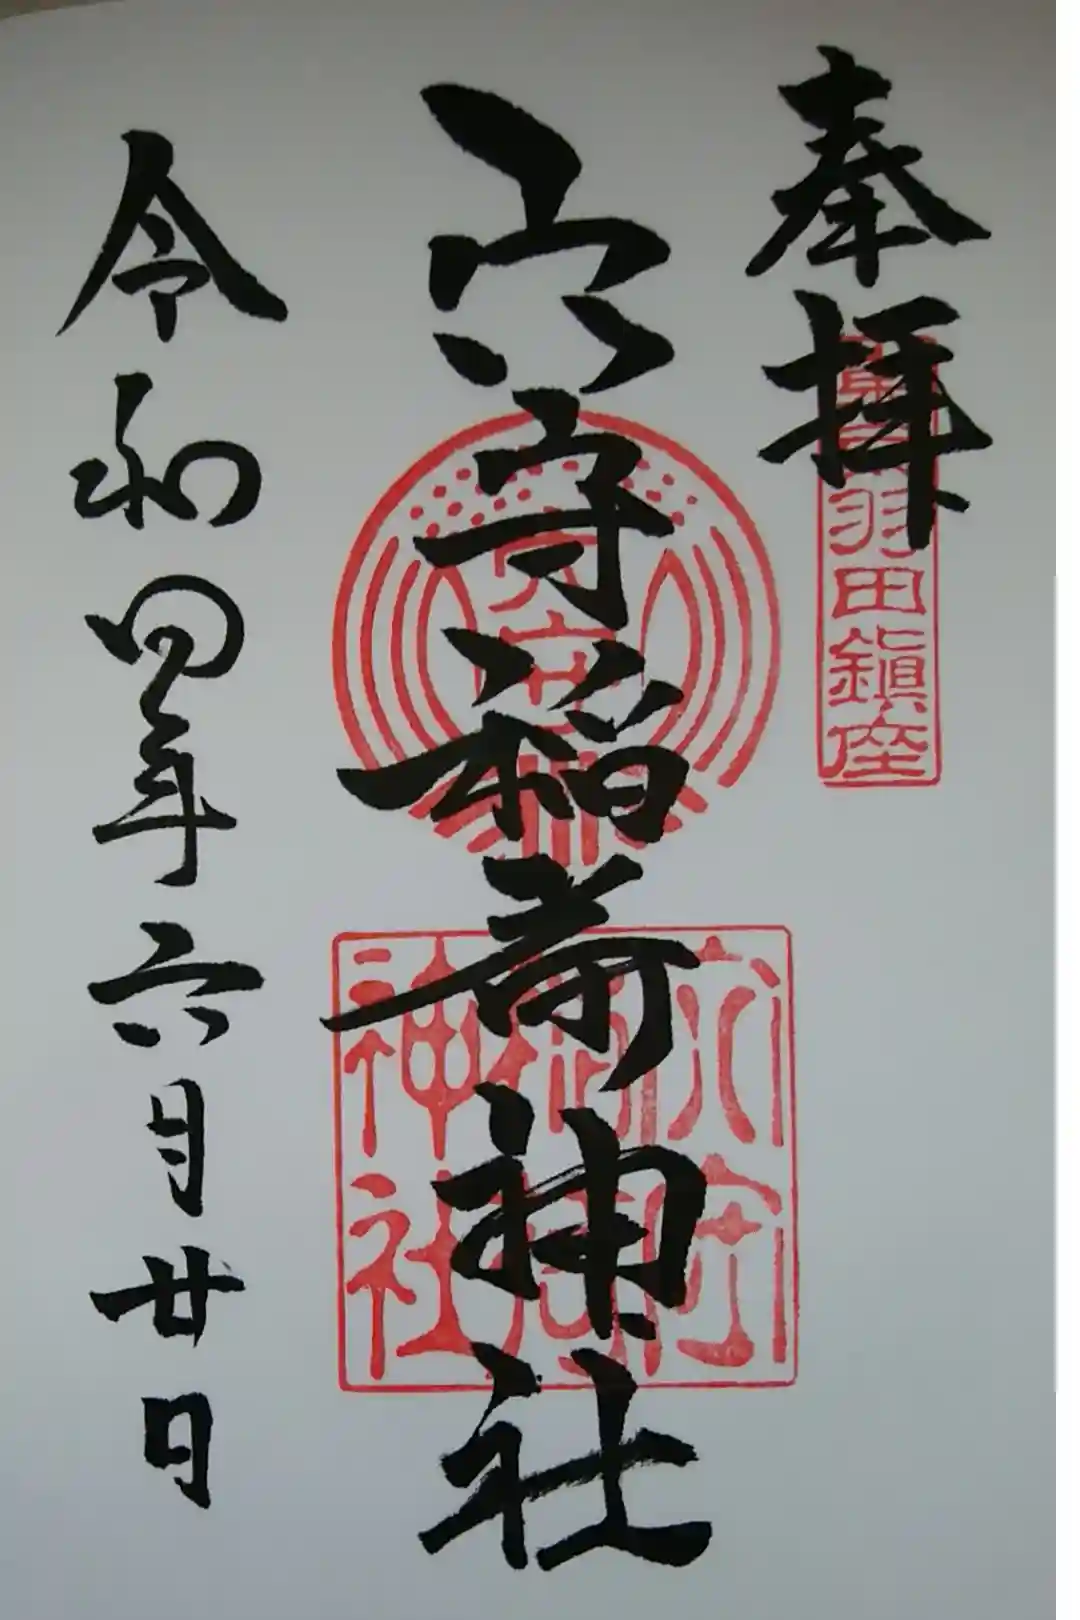 奉拝
東京羽田鎮座
穴守稲荷神社
穴守
穴守稲荷神社
令和四年六月廿日